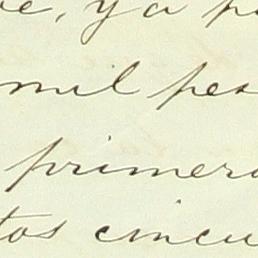 ve, ya p
mil pes
primero
tos cincu